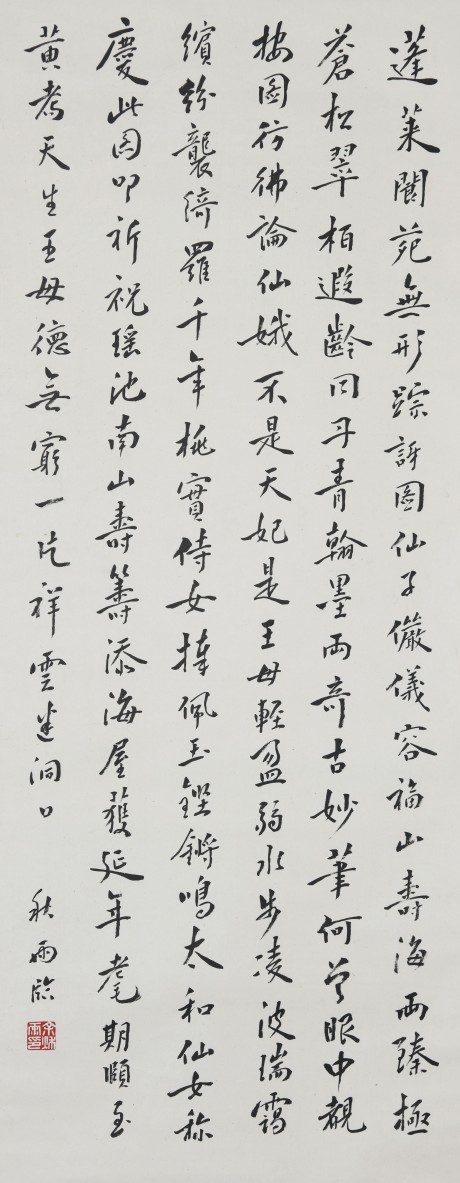 蓬萊閬苑無形踪訝圖仙子儼儀容福山壽海兩臻極
蒼松翠栢遐齡同丹青翰墨兩奇古妙筆何曾眼中覩
按圖彷彿論仙娥不是天妃是王母輕盈弱水步凌波瑞靄
繽紛襲綺羅千年桃實侍女捧佩玉鏗鏘鳴太和仙女称
慶此圖叩祈祝瑤池南山壽籌添海屋獲延年耄期頤至
黃耇天生王母德無窮一片祥雲迷洞口
秋雨臨
余秋雨印